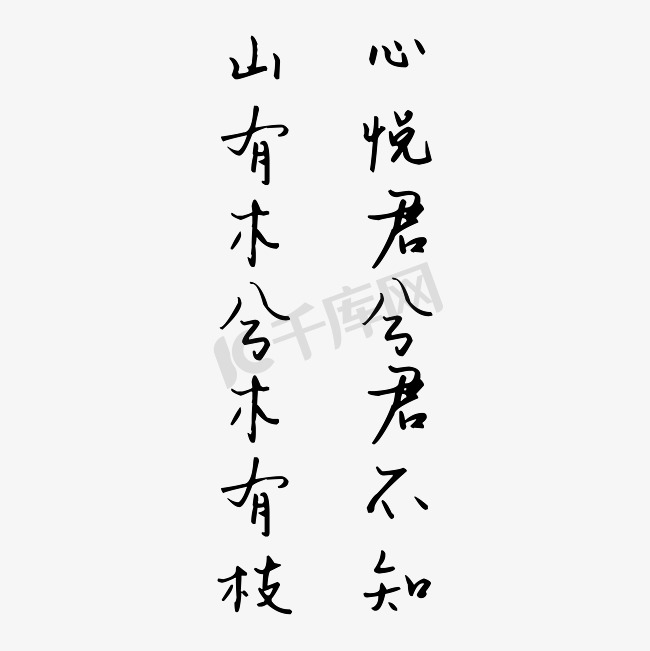 山有木兮木有枝
心悦君兮君不知
千库网